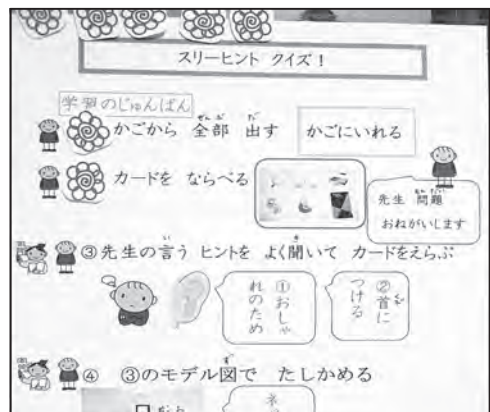 スリーヒント クイズ！
学習のじゅんばん
かごから 全部 出す かごにいれる
カードを ならべる
先生 問題
おねがいします
③先生の言う ヒントを よく聞いて カードをえらぶ
①おしゃ
れのため
②首に
つける
④ ③のモデル図で たしかめる